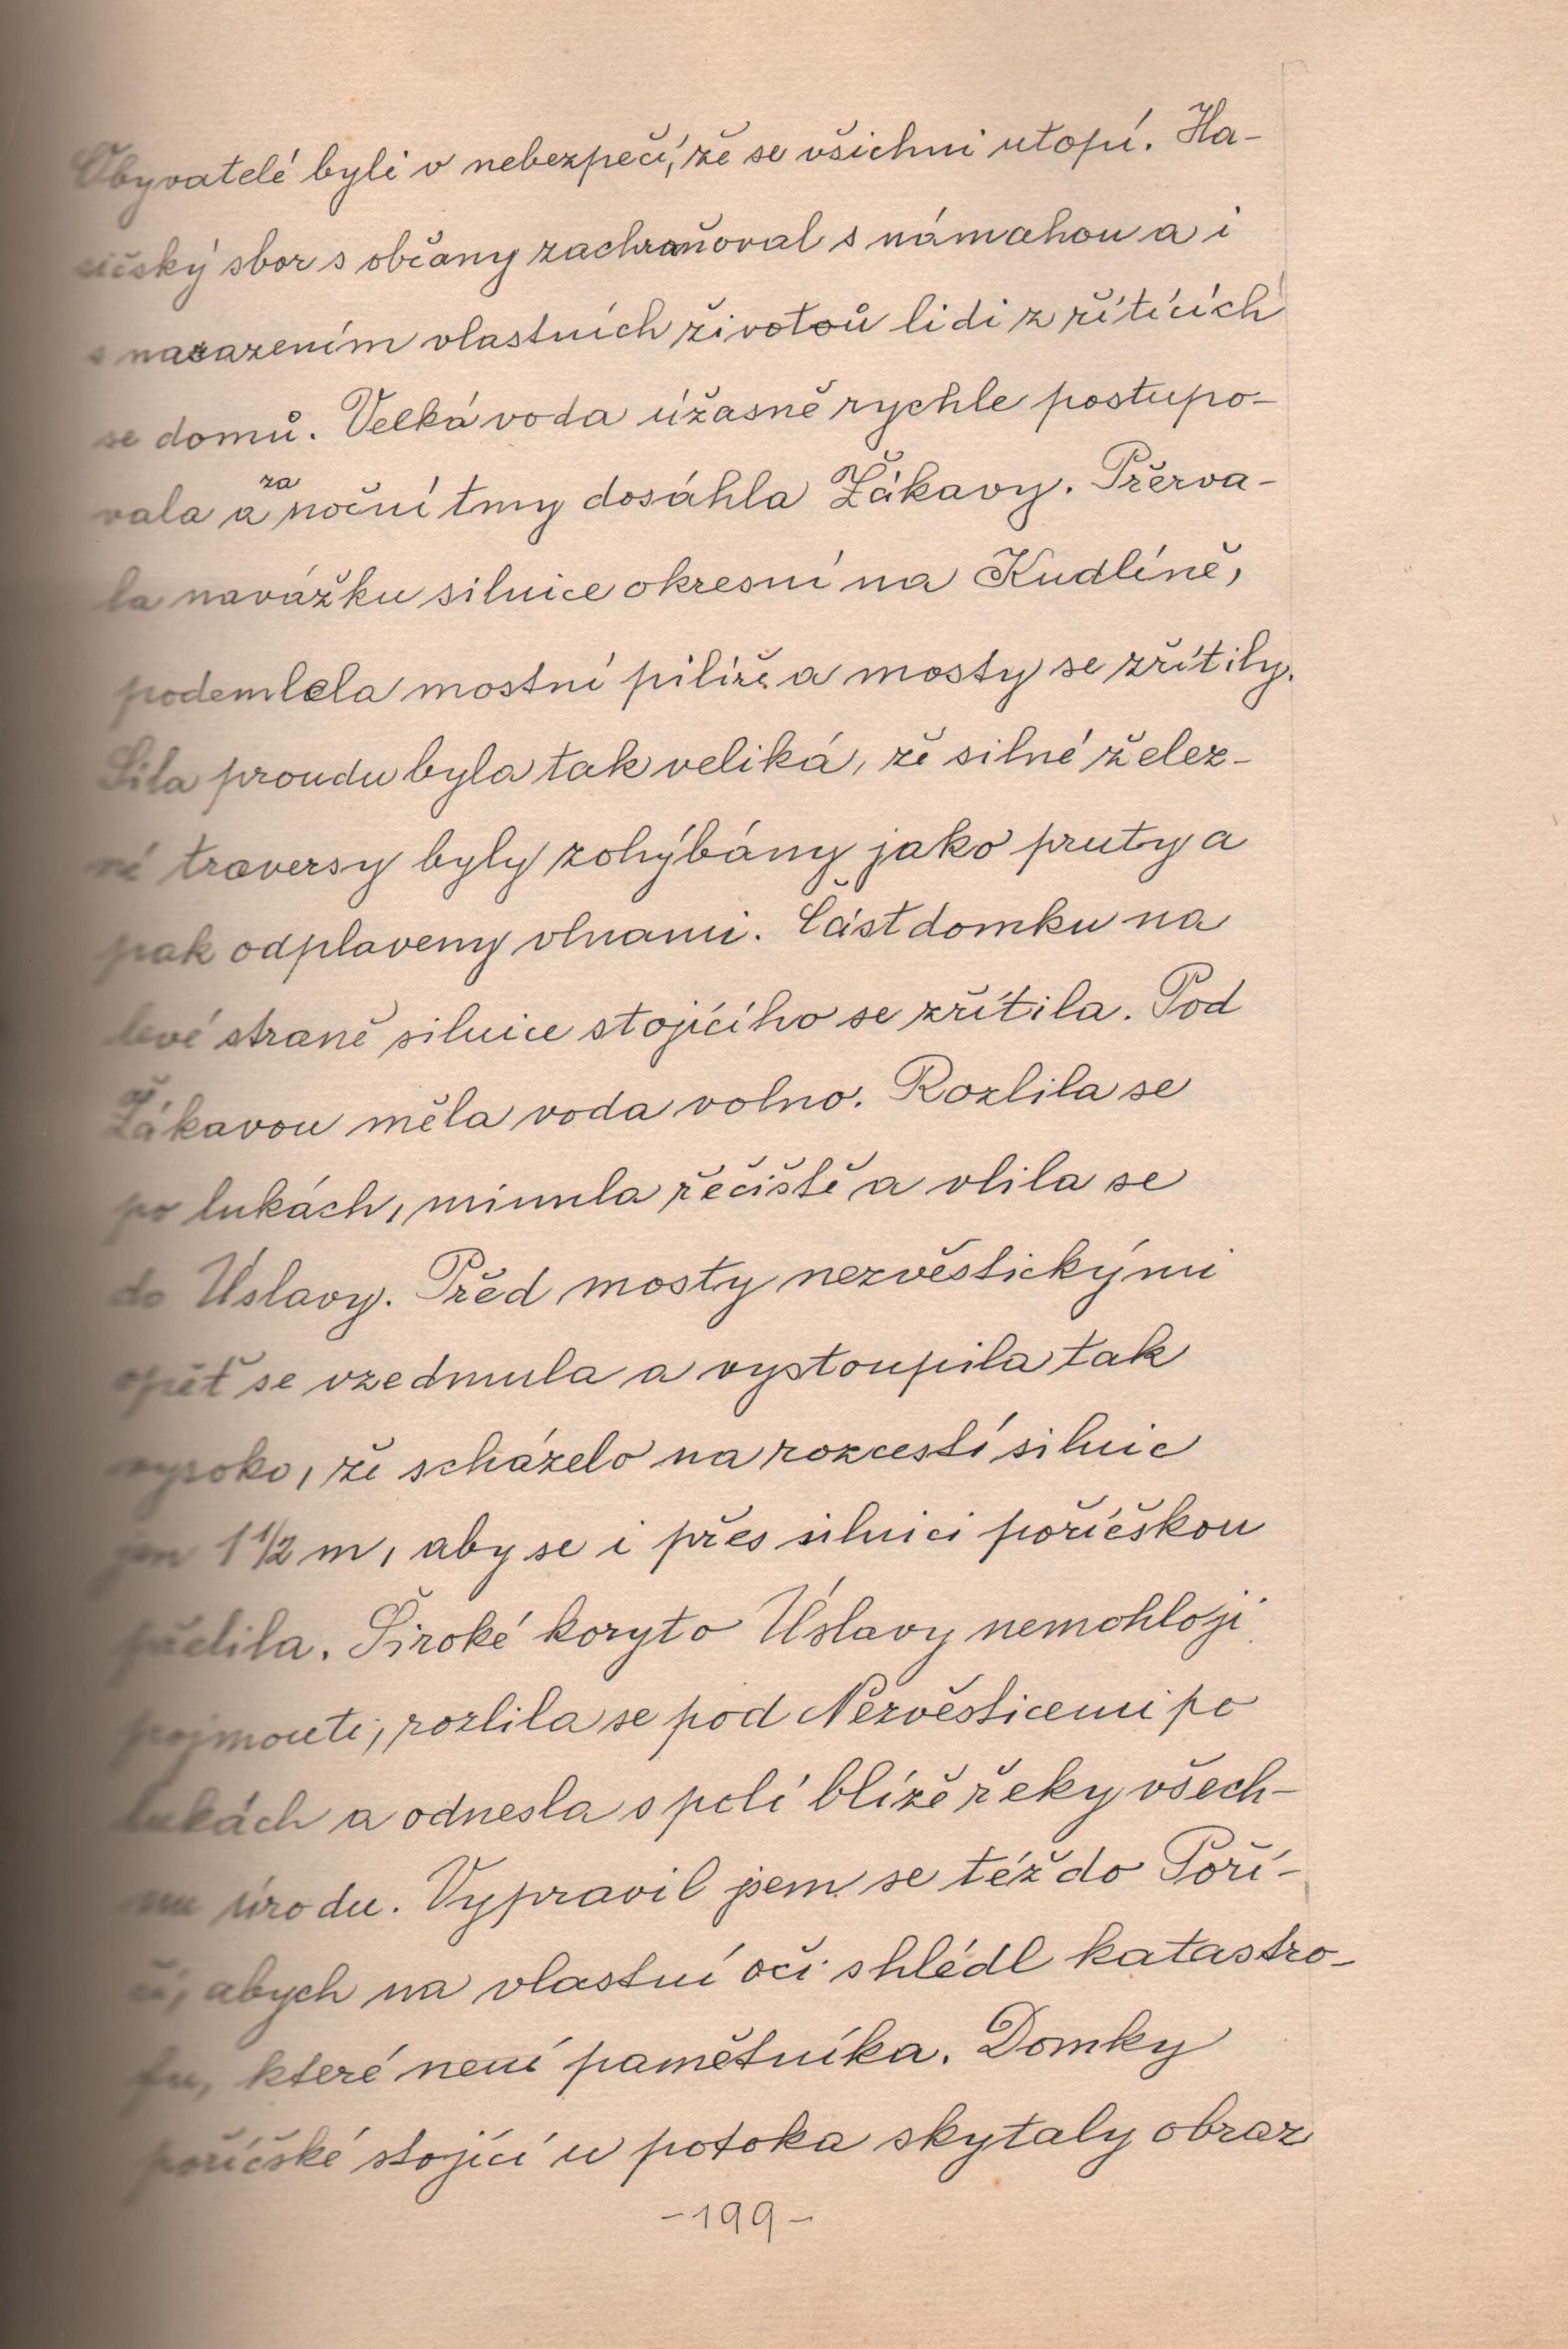 Obyvatelé byli v nebezpečí, že se všichni utopí. Ha-
sičský sbor s občany zachraňoval s námahou a i
s nasazením vlastních životů lidi z řítících
se domů. Velká voda úžasně rychle postupo-
vala a za noční tmy dosáhla Žákavy. Přerva-
la navážku silnice okresní na Kudlíně,
podemlela mostní pilíře a mosty se zřítily.
Síla proudu byla tak veliká, že silné želez-
né traversy byly zohýbány jako pruty a
pak odplaveny vlnami. Část domku na
levé straně silnice stojícího se zřítila. Pod
Žákavou měla voda volno. Rozlila se
po lukách, minula řečiště a vlila se
do Úslavy. Před mosty nezvěstickými
opět se vzedmula a vystoupila tak
vysoko, že scházelo na rozcestí silnic
jen 1 1/2 m, aby se i přes silnici poříčskou
přelila. Široké koryto Úslavy nemohlo ji
pojmouti, rozlila se pod Nezvěsticemi po
lukách a odnesla s polí blíže řeky všech-
nu úrodu. Vypravil jsem se též do Poří-
čí, abych na vlastní oči shlédl katastro-
fu, které není pamětníka. Domky
poříčské stojící u potoka skytaly obraz
-199-